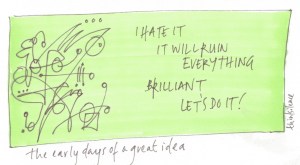 I HATE IT
IT WILL RUIN
EVERYTHING
BRILLIANT
LET'S DO IT!
the early days of a great idea